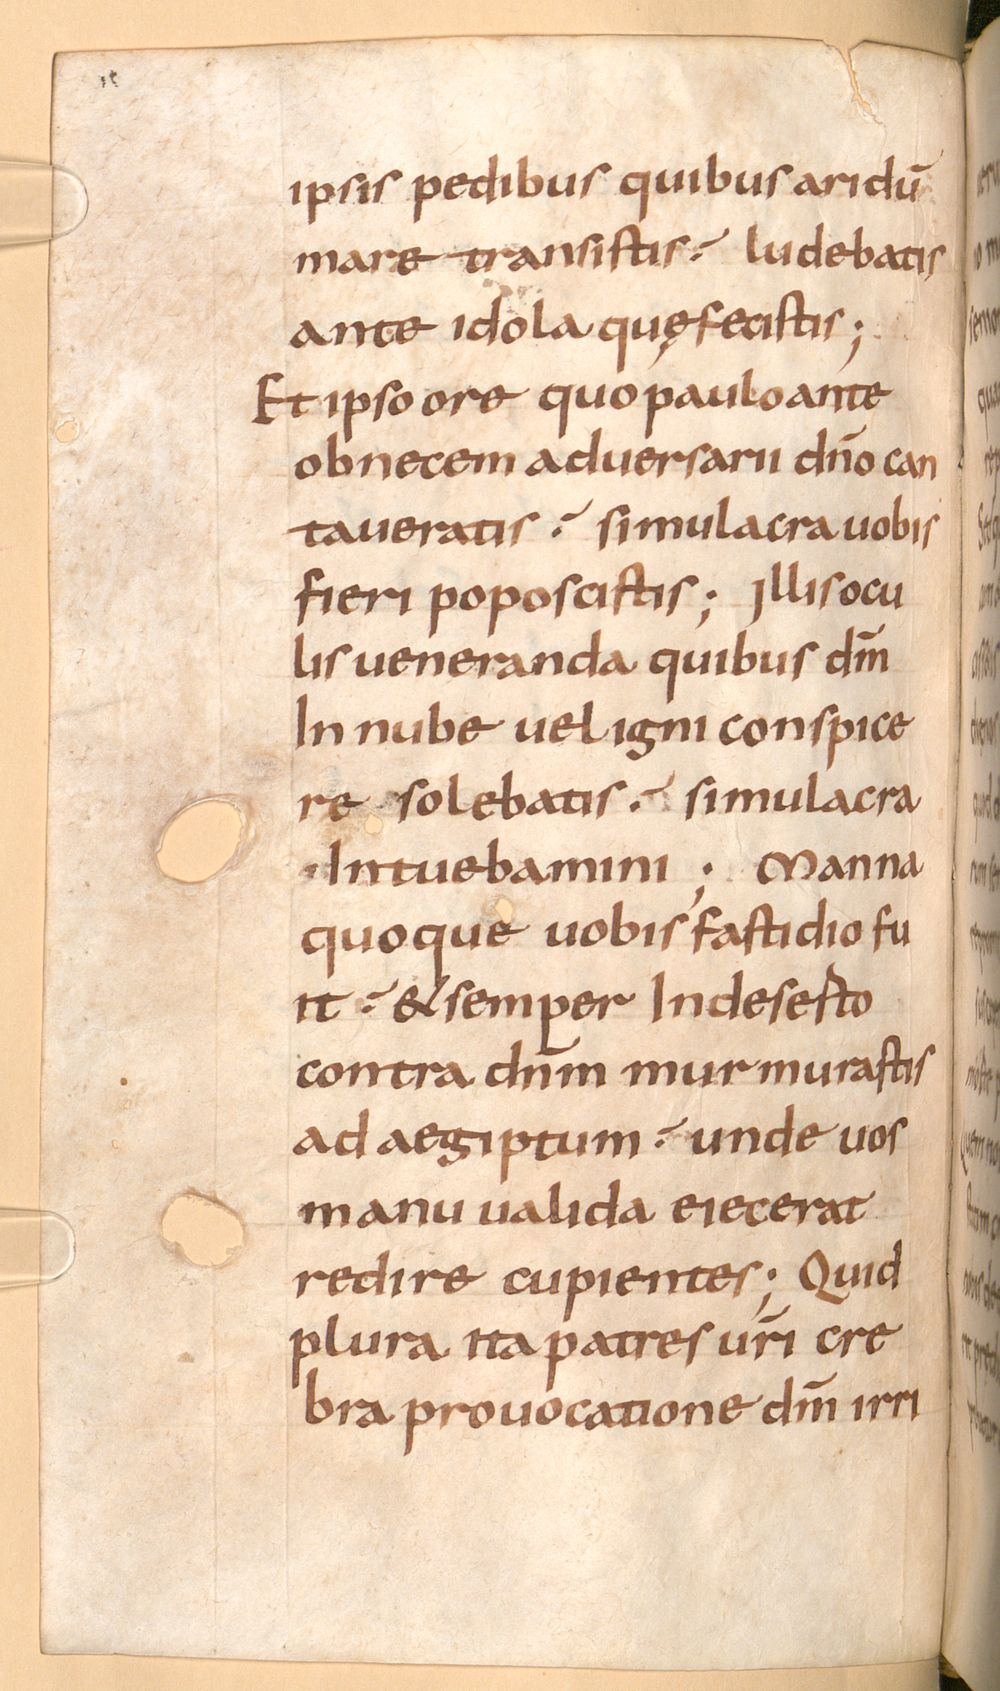 ipsis pedibus quibus aridū
mare transistis; ludebatis
ante idola quę fecistis;
Et ipso ore quo paulo ante
ob necem aduersarii dño can
taueratis; simulacra uobis
fieri poposcistis; Illis ocu
lis ueneranda quibus dm̄
In nube uel igni conspice
re solebatis; simulacra
Intuebamini; Manna
quoque uobis fastidio fu
it; & semper In deserto
contra dnm̄ murmurastis
ad aegiptum; unde uos
manu ualida eiecerat
redire cupientes; Quid
plura ita patres ur̄i cre
bra prouocatione dm̄ irri